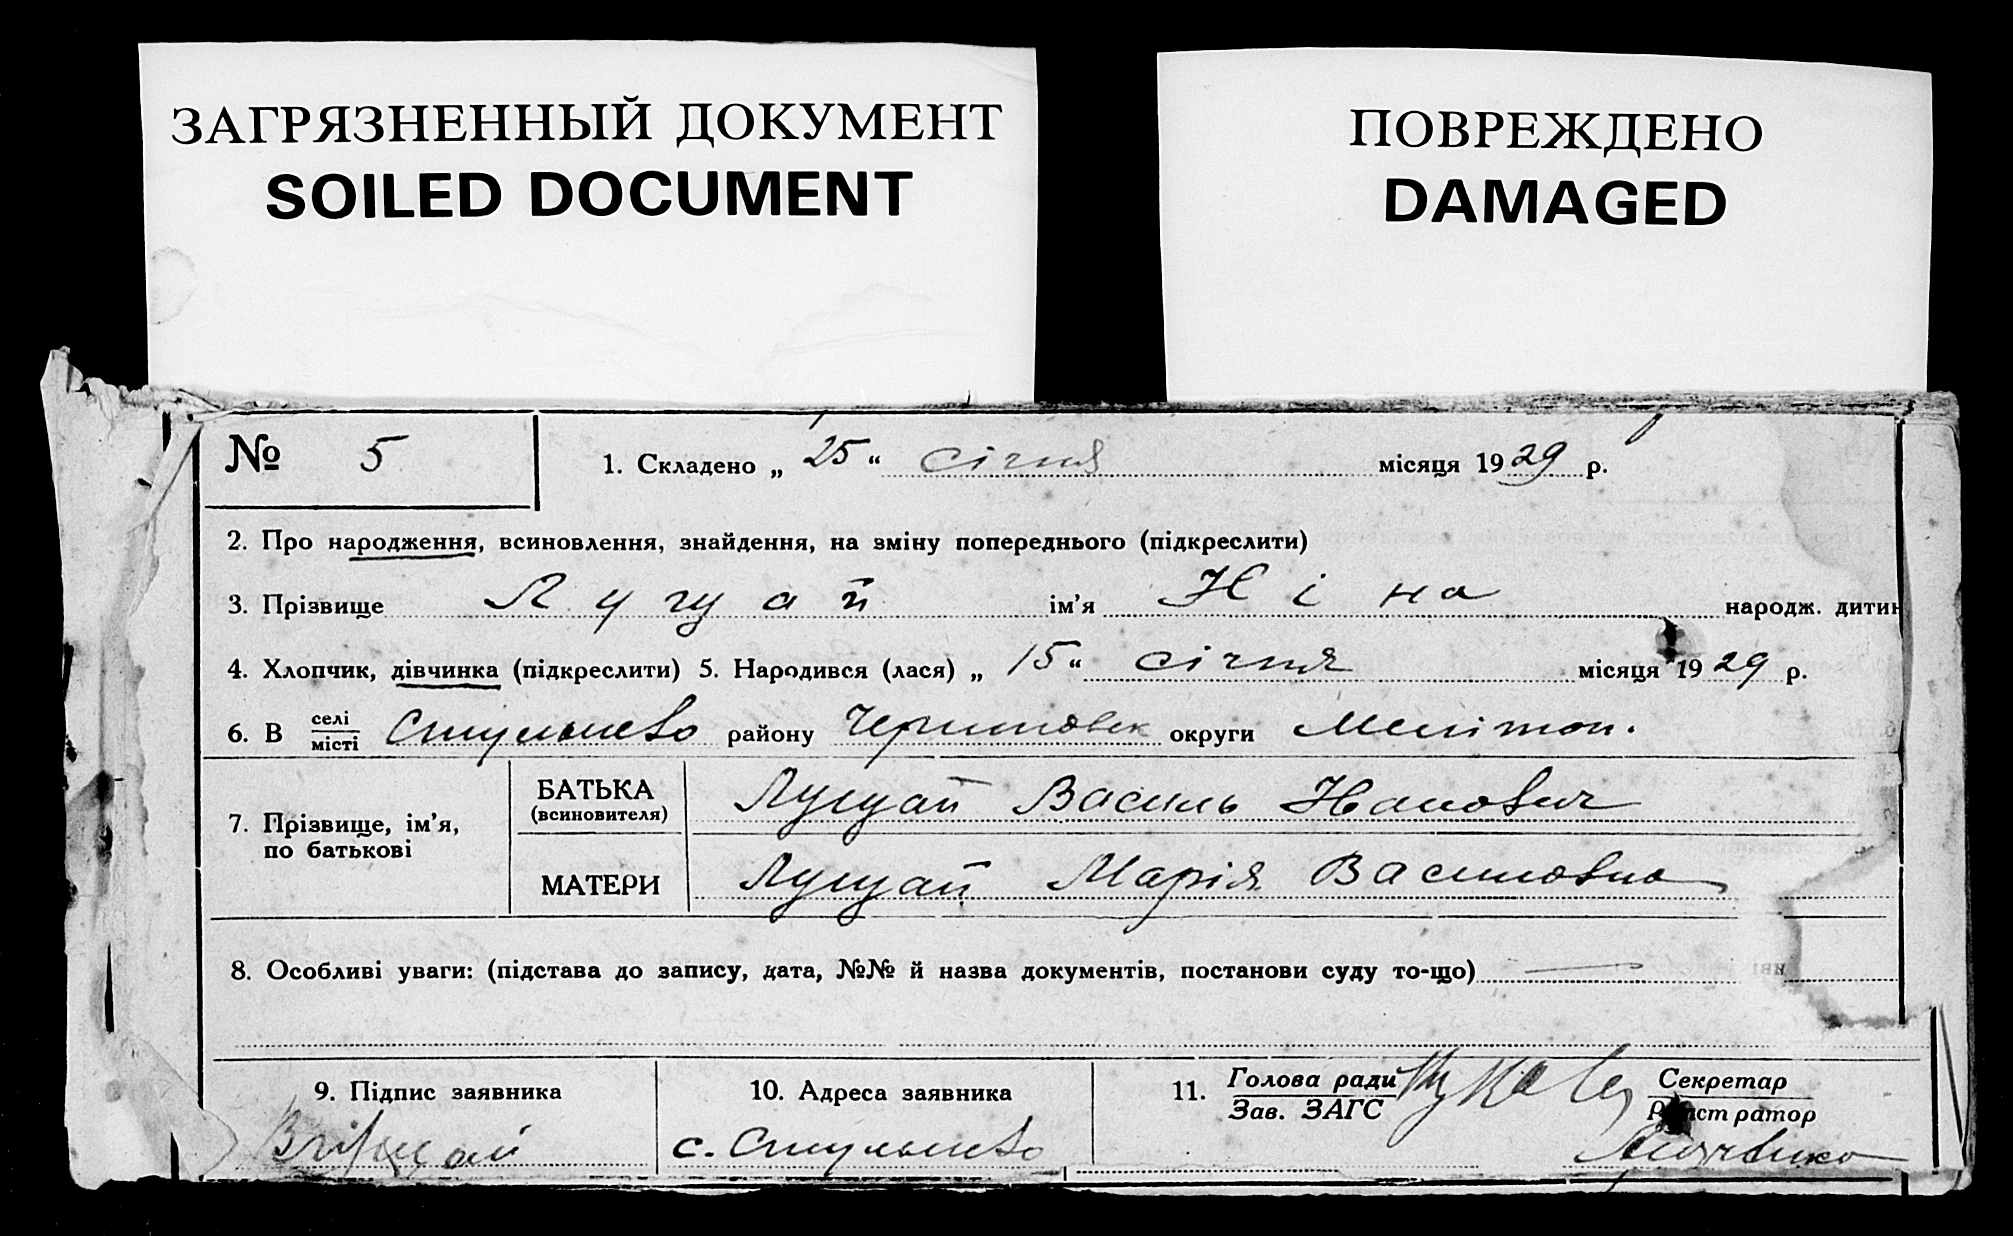 ЗАГРЯЗНЕННЫЙ ДОКУМЕНТ
SOILED DOCUMENT
ПОВРЕЖДЕНО
DAMAGED
№ 5
1. Складено „ 25 “ січня місяця 1929 р.
2. Про народження, всиновлення, знайдення, на зміну попереднього (підкреслити)
3. Прізвище Лугуай ім’я Ніна народж. дитин
4. Хлопчик, дівчинка (підкреслити) 5. Народився (лася) „ 15 “ січня місяця 1929 р.
6. В селі місті Стульнево району округи Мелітоп.
7. Прізвище, ім’я, по батькові
БАТЬКА (всиновителя) Лугуай Василь
МАТЕРИ Лугуай Марія Василовна
8. Особливі уваги: (підстава до запису, дата, №№ й назва документів, постанови суду то-що)
9. Підпис заявника
10. Адреса заявника
с. Стульнево
11. Голова ради
Зав. ЗАГС
Секретар